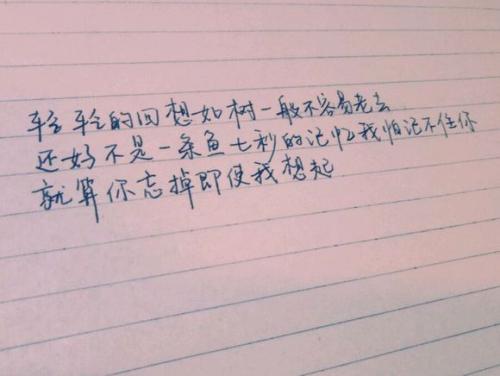 轻轻的回想如树一般不容易老去
还好不是一条鱼七秒的记忆我怕记不住你
就算你忘掉即使我想起